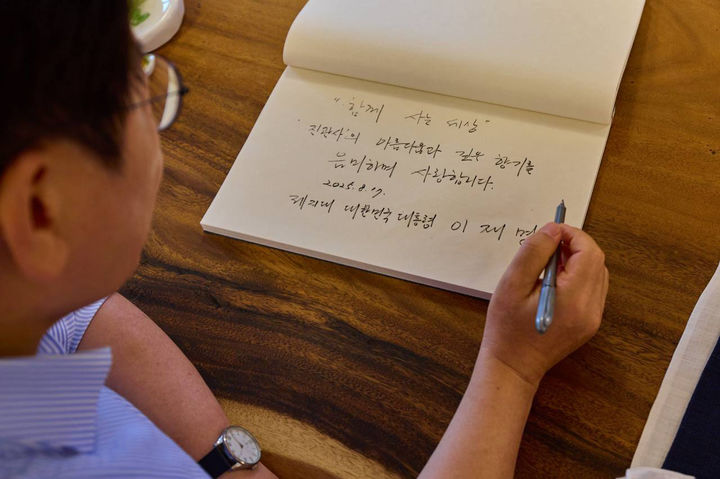 "함께 사는 세상"
'진관사'의 아름다움과 깊은 향기를
음미하며 사랑합니다.
2025. 8. 17.
제21대 대한민국 대통령 이 재 명